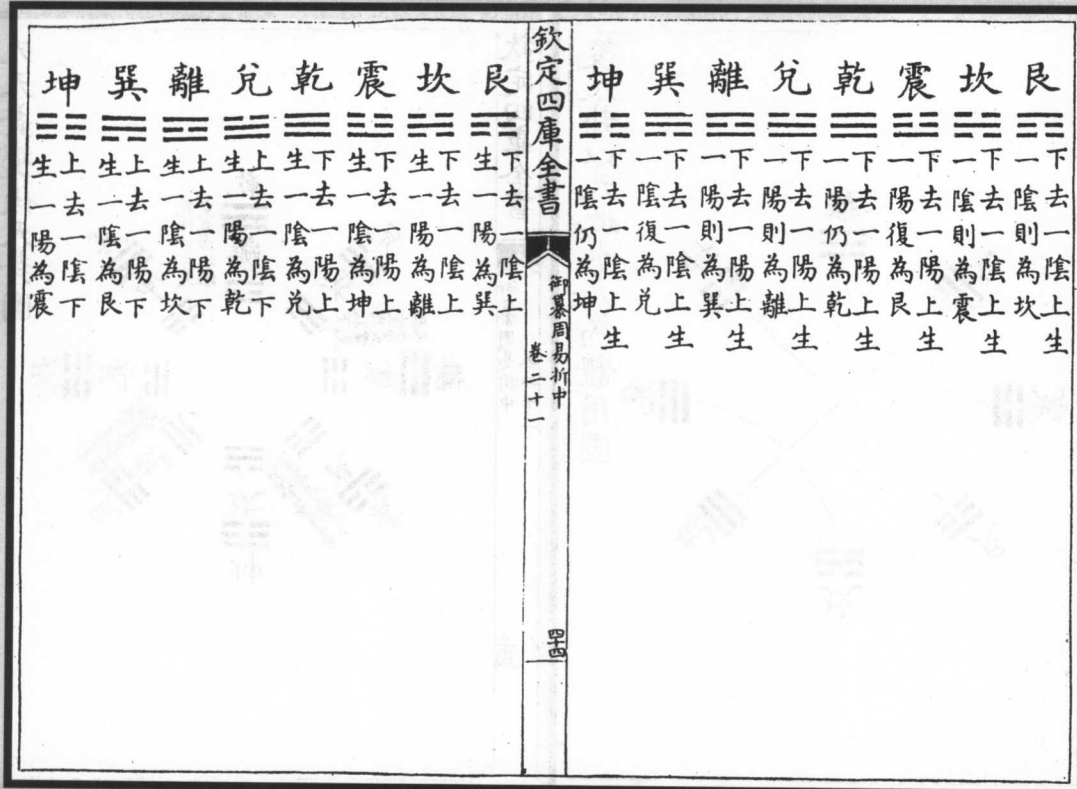 艮
下去一陰上生
一陰則為坎
坎
下去一陰上生
一陰則為震
震
下去一陽上生
一陽復為艮
乾
下去一陽上生
一陽仍為乾
兌
下去一陽上生
一陽則為離
離
下去一陽上生
一陽則為巽
巽
下去一陰上生
一陰復為兌
坤
下去一陰上生
一陰仍為坤
欽定四庫全書
御纂周易折中
卷二十一
四十四
艮
下去一陰上
生一陽為巽
坎
下去一陰上
生一陽為離
震
下去一陽上
生一陰為坤
乾
下去一陽上
生一陰為兌
兌
上去一陰下
生一陽為乾
離
上去一陽下
生一陰為坎
巽
上去一陽下
生一陰為艮
坤
上去一陰下
生一陽為震